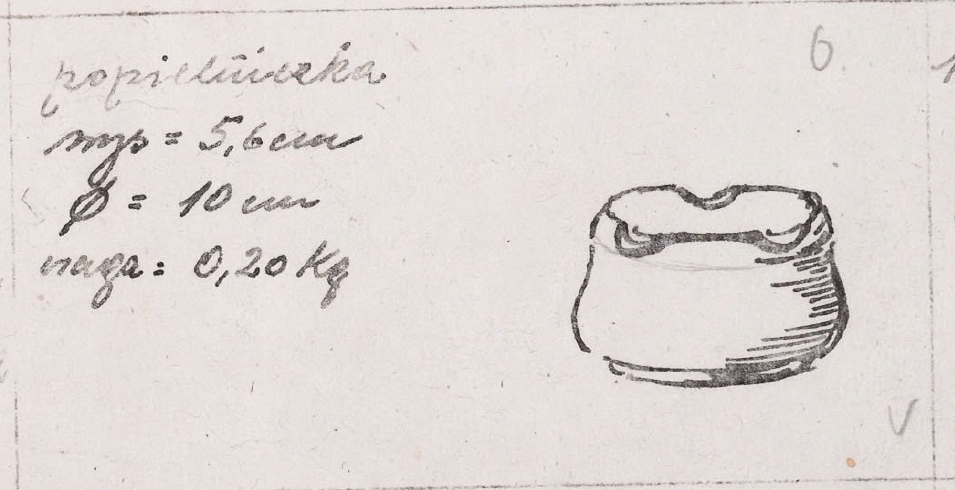 popielniczka
wys = 5,6 cm
ø = 10 cm
waga = 0,20 Kg
6
V